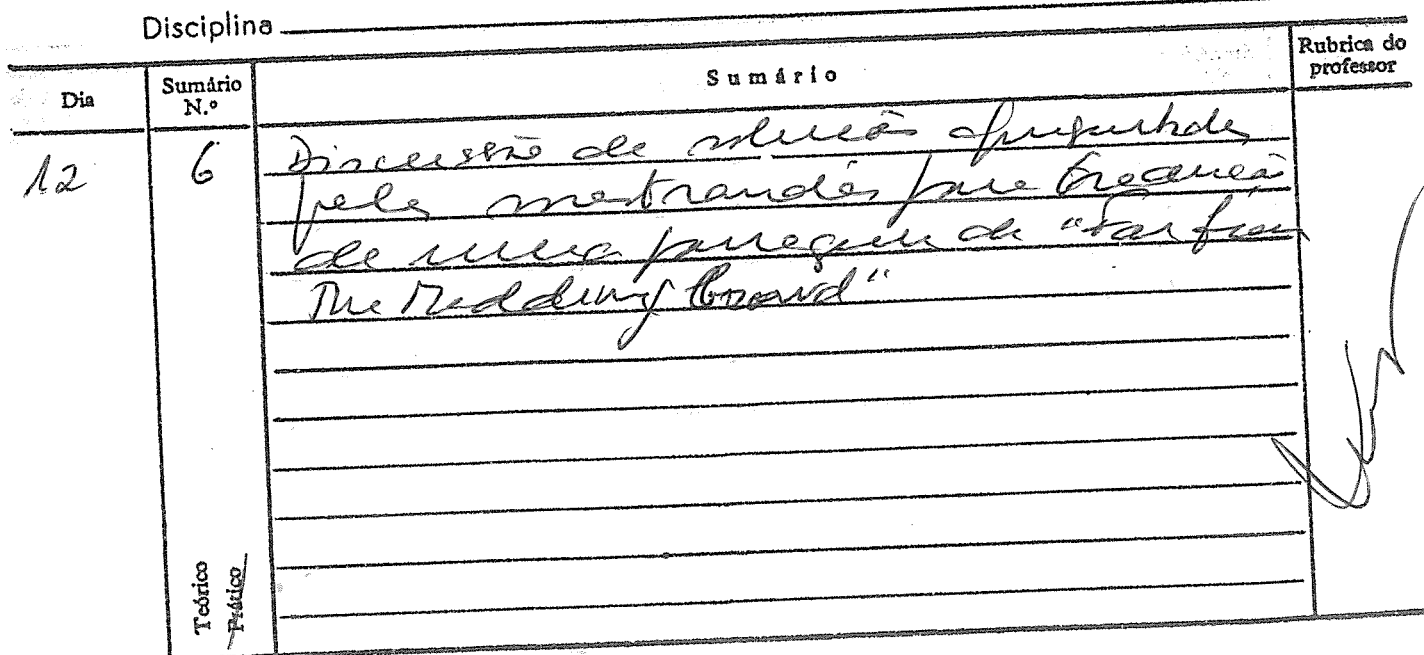 Disciplina
Dia
Sumário N.º
Sumário
Rubrica do professor
12
6
Discussão de soluções apresentadas
pelos mestrandos para tradução
de uma passagem de "Far from
The Madding Crowd"
Teórico
Prático